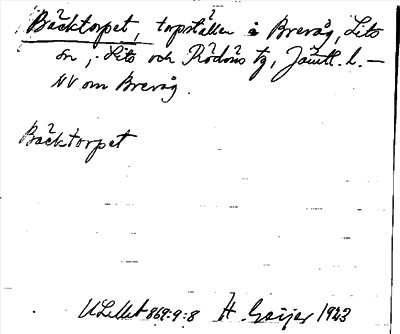 Bäcktorpet, torpställe i Brevåg, Lits
sn, Lits och Rödöns tg, Jämtl. l. —
NV om Brevåg.
Bäcktorpet
ULMA 869:9:8 H. Geijer 1923